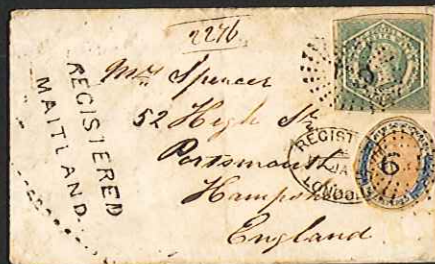 2276
REGISTERED
MAITLAND
Mrs Spencer
52 High St
Portsmouth
Hampsh
England
REGIST
JA
LONDO
6